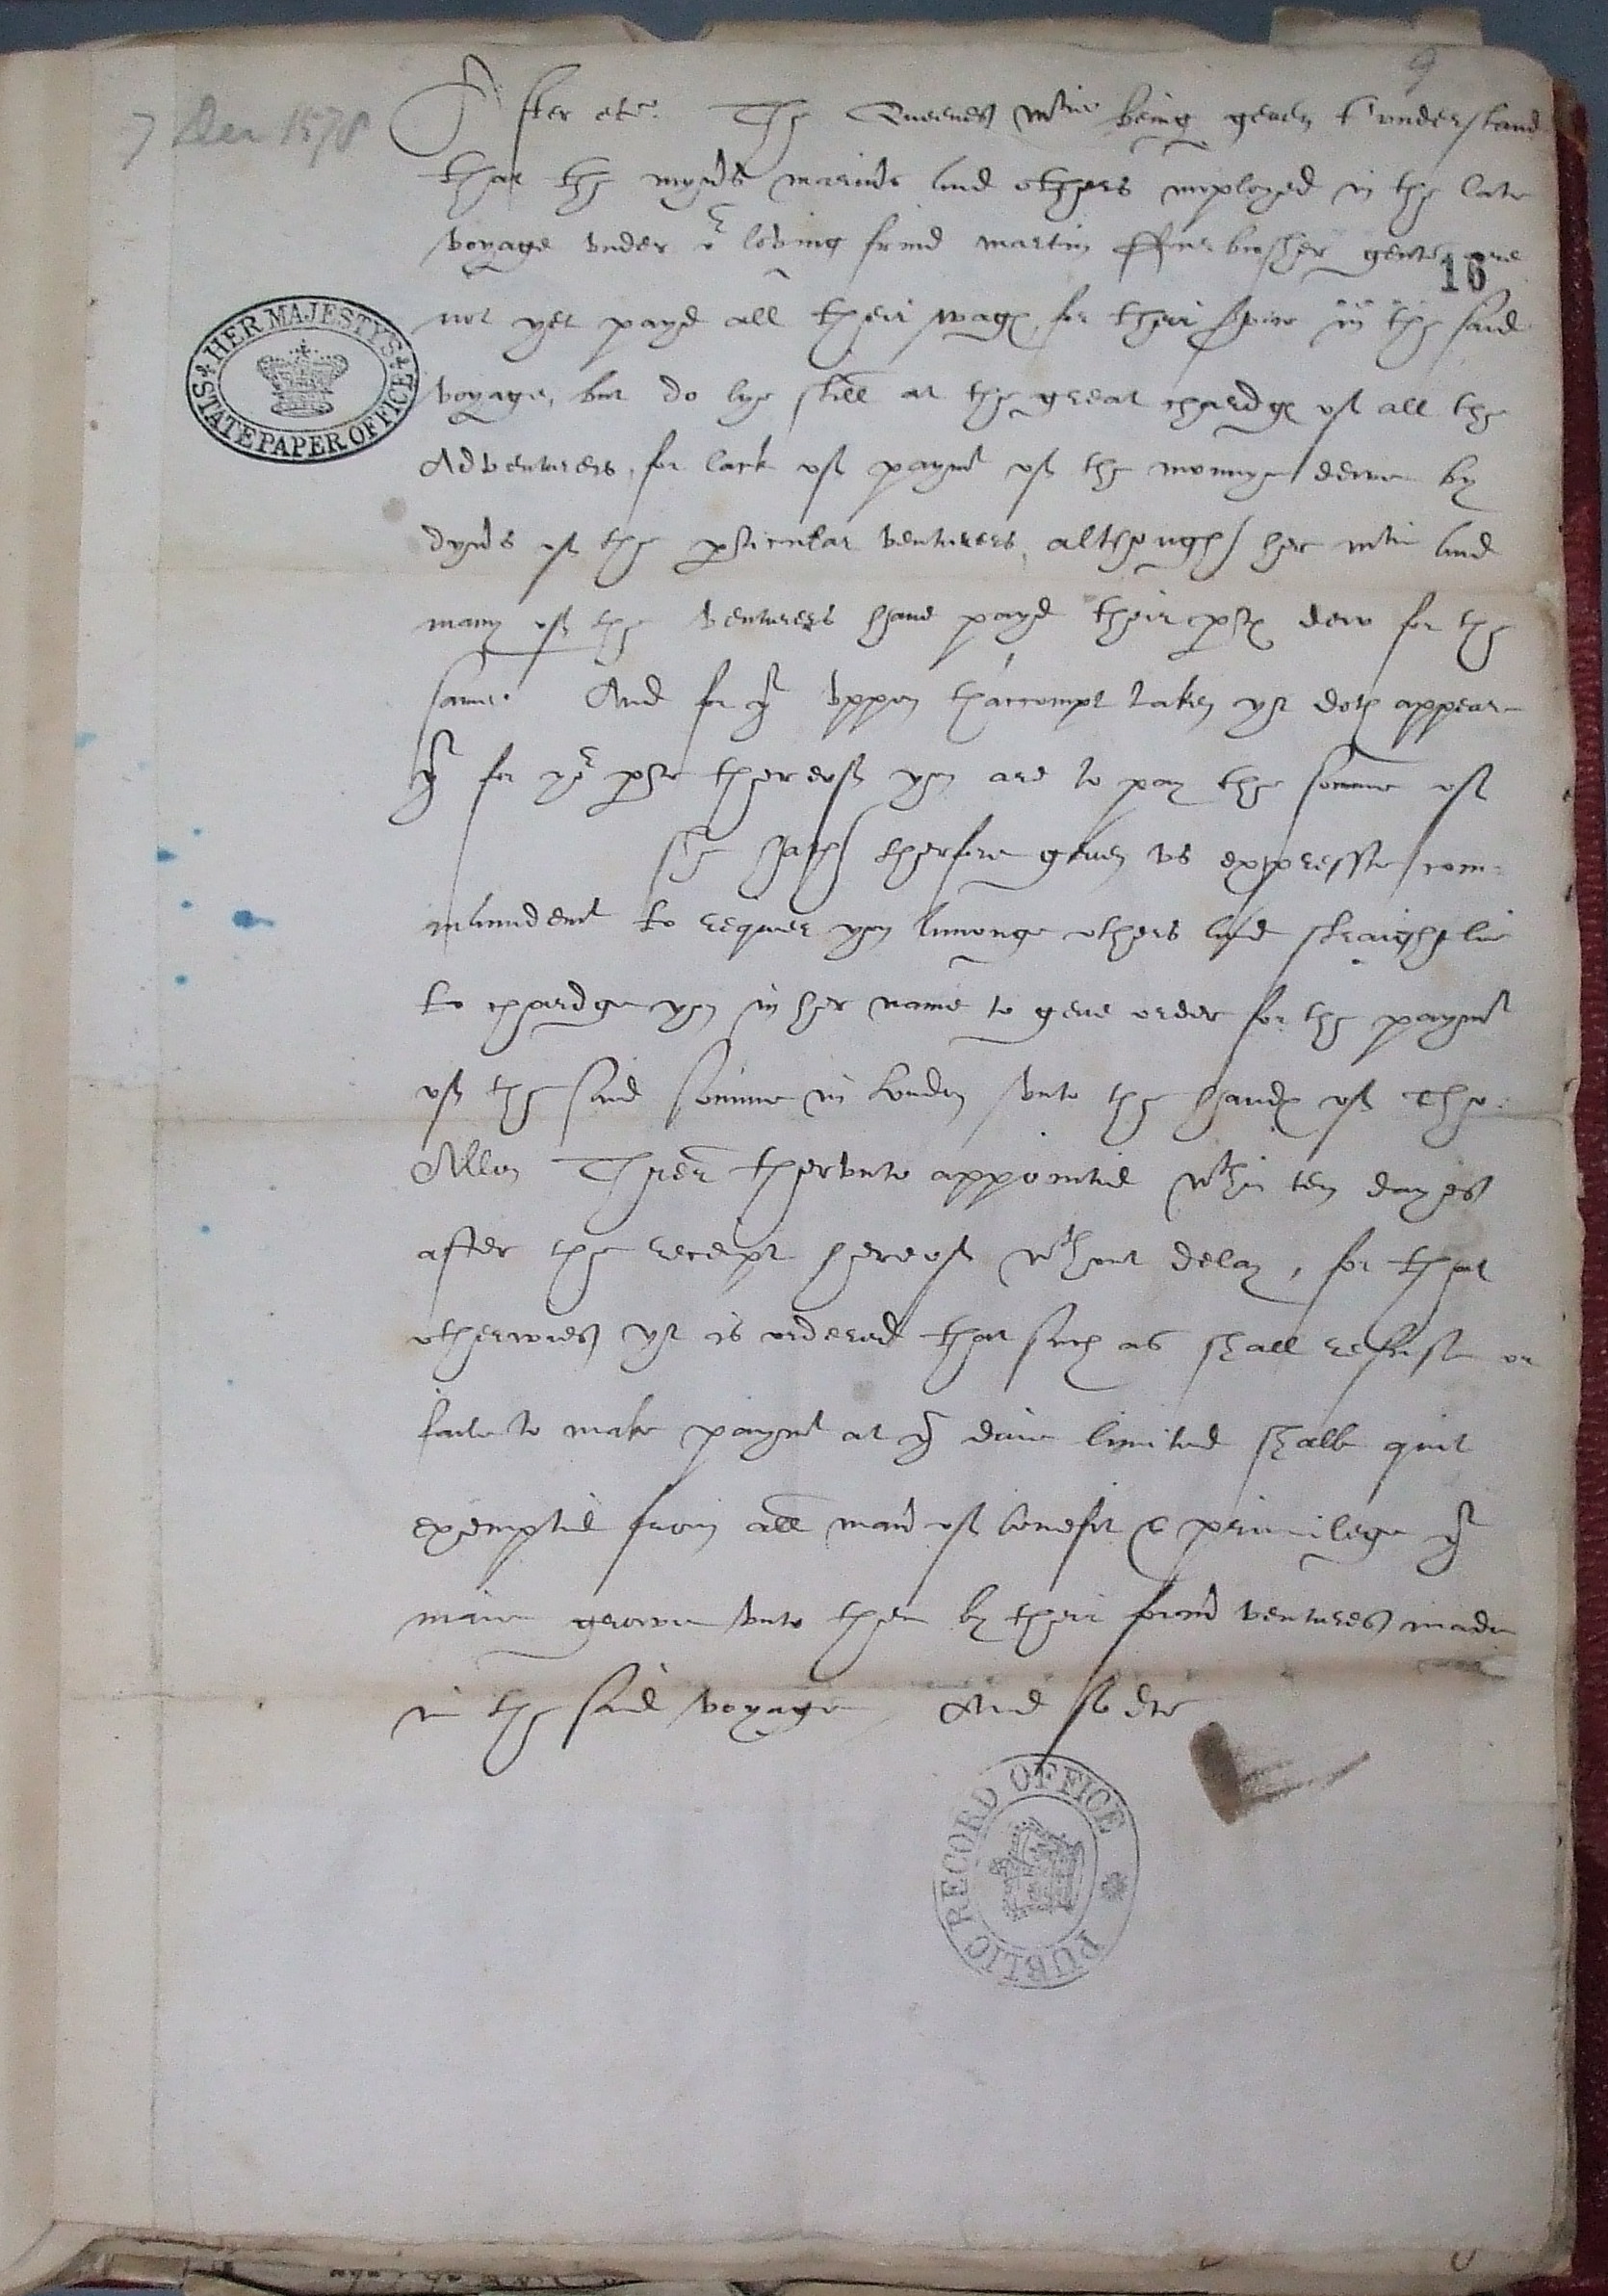 9
7 Dec 1578
After etc. The Queenes Ma^tie being geven t'vnderstand
that the myners mariners and others imployed in the late
voyage vnder o^r loving frind Martin Ffurbussher gent are
16
not yet payd all their wages for their service in the said
voyage, but do lye still at the great chardges of all the
Adventurers, for lack of paym^t of the monnye dewe by
dyvers of the perticular venturers, although her Ma^tie and
many of the venturers have payd their partes dew for the
same. And for y^t vppon th'accompt taken yt doth appeare
y^t for yo^r parte thereof you are to pay the somme of
she hath therfore geven vs expresse com=
maundem^t to requier you amonge others and straightlie
to chardge you in her name to geve order for the paym^t
of the said somme in London vnto the handes of Tho:
Allen Threr thervnto appointed w^thin ten dayes
after the receipt hereof w^thout delay, for that
otherwies yt is ordered that such as shall refuse or
faile to make paym^t at y^e daie limited shalbe quit
exempted from all maner of benefit & priuilege y^t
maie growe vnto them by their former ventures made
in the said voyage And so etc
HER MAJESTY'S STATE PAPER OFFICE
PUBLIC RECORD OFFICE